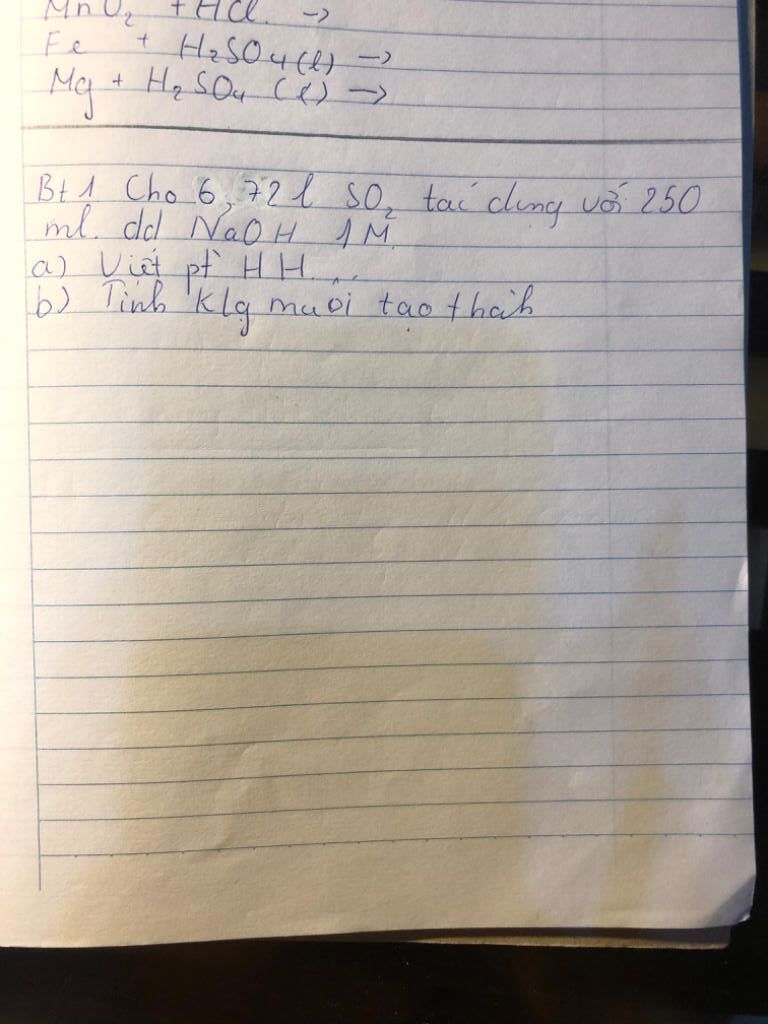 MnO₂ + HCl. →
Fe + H₂SO₄(l) →
Mg + H₂SO₄ (l) →
Bt 1 Cho 6,72 l SO₂ tác dụng với 250
ml. dd NaOH 1M.
a) Viết pt HH.
b) Tính klg muối tạo thành